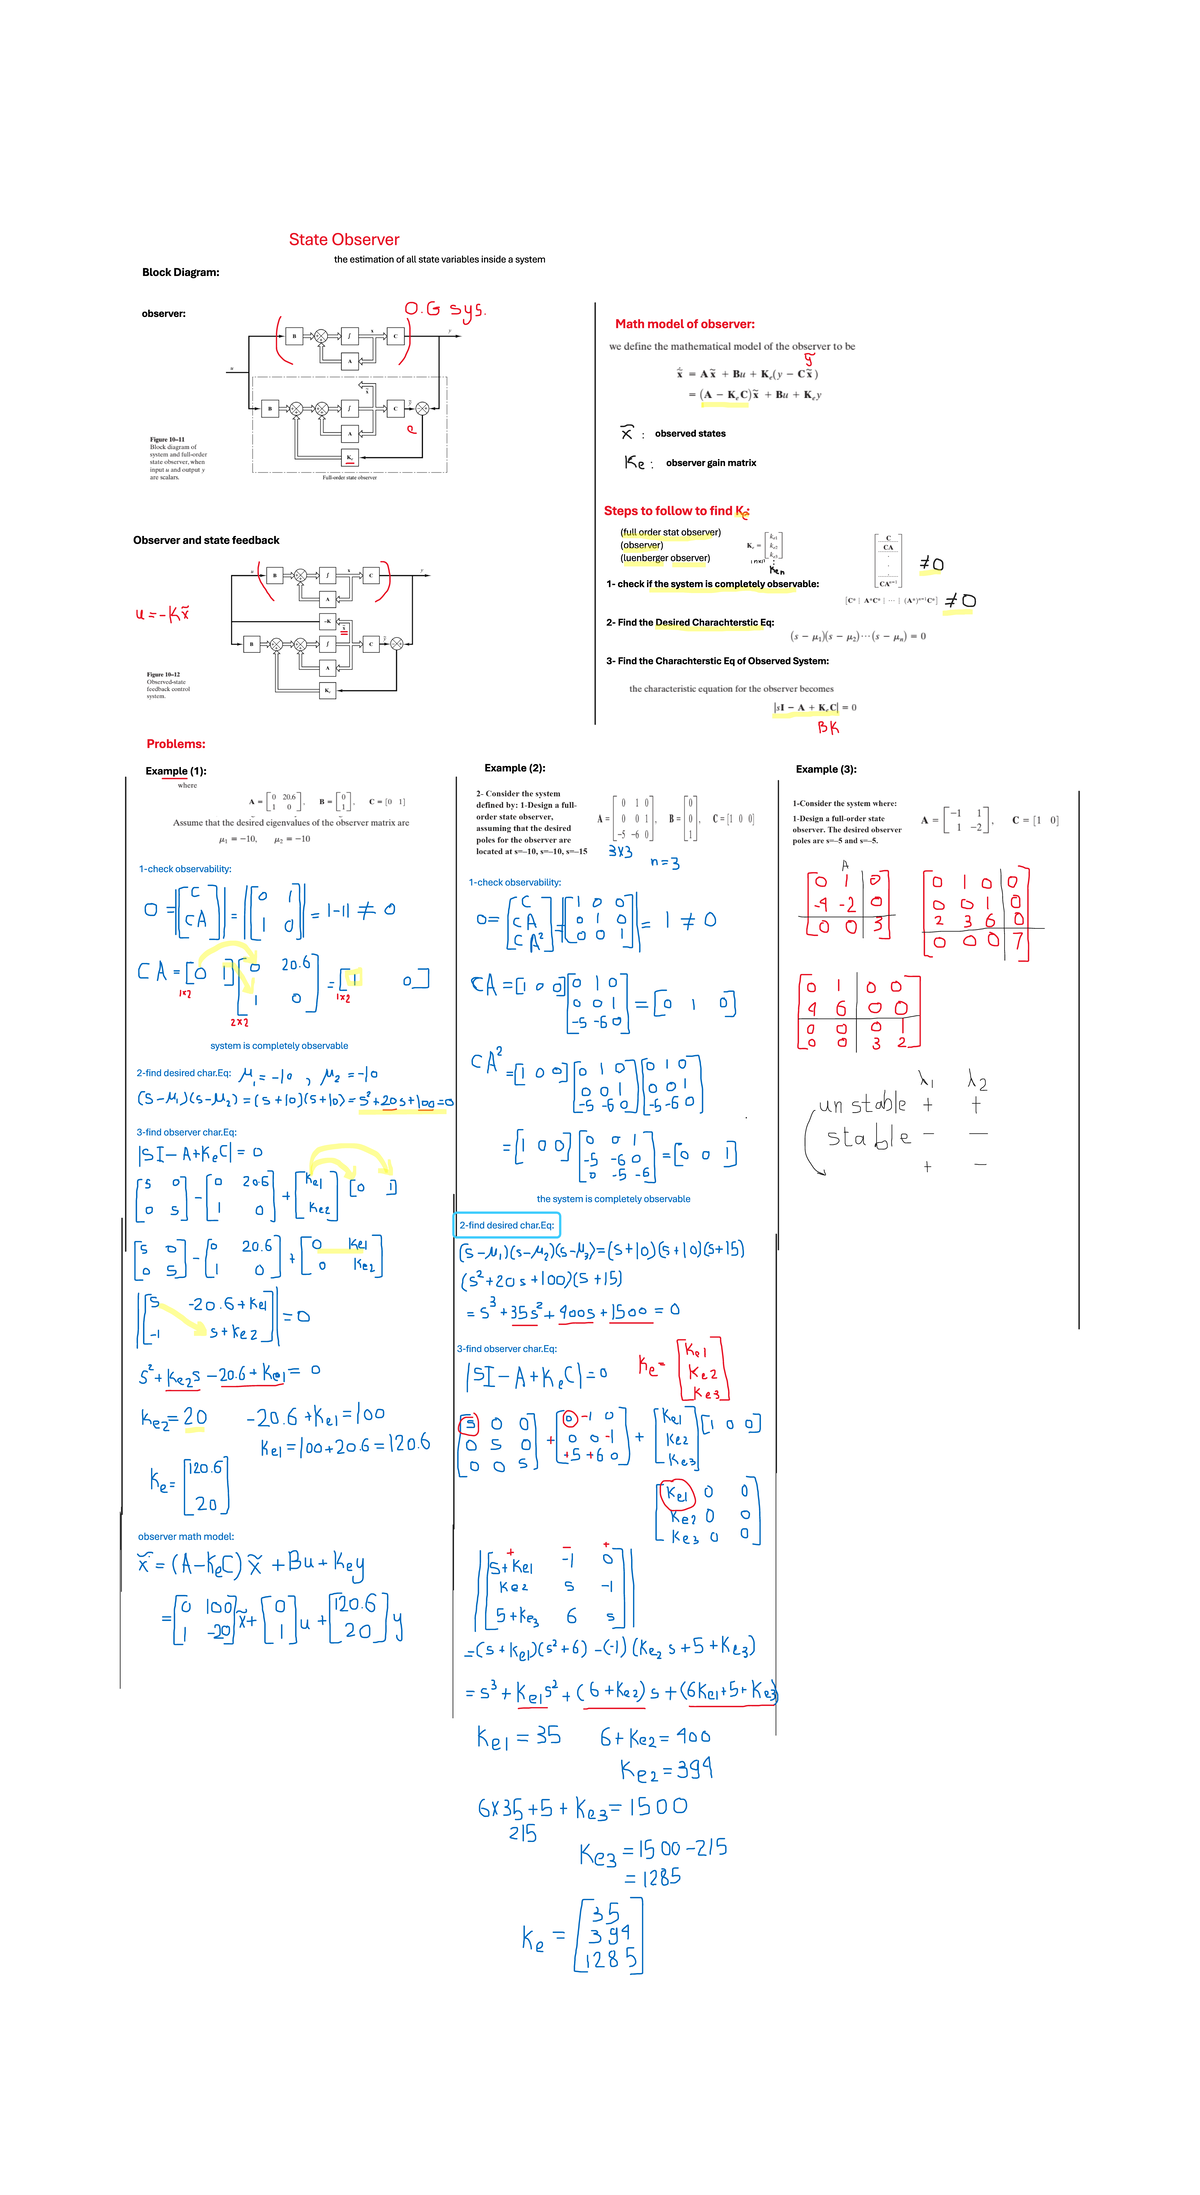 State Observer
the estimation of all state variables inside a system
Block Diagram:
observer:
O.G sys.
u
B
∫
x
C
y
A
x̃
B
∫
C
ỹ
e
A
Kₑ
Figure 10–11
Block diagram of
system and full-order
state observer, when
input u and output y
are scalars.
Full-order state observer
Observer and state feedback
u = -Kx̃
u
B
∫
x
C
y
A
-K
x̃
B
∫
C
ỹ
A
Kₑ
Figure 10–12
Observed-state
feedback control
system.
Math model of observer:
we define the mathematical model of the observer to be
ỹ
x̃̇ = Ax̃ + Bu + Kₑ(y − Cx̃)
= (A − KₑC)x̃ + Bu + Kₑy
x̃ : observed states
Ke : observer gain matrix
Steps to follow to find Ke:
(full order stat observer)
(observer)
(luenberger observer)
Kₑ = [ke1; ke2; ke3]
ken
[C; CA; . . . CAⁿ⁻¹] ≠ 0
1- check if the system is completely observable:
[C* | A*C* | ⋯ | (A*)ⁿ⁻¹C*] ≠ 0
2- Find the Desired Charachterstic Eq:
(s − μ₁)(s − μ₂)⋯(s − μₙ) = 0
3- Find the Charachterstic Eq of Observed System:
the characteristic equation for the observer becomes
|sI − A + KₑC| = 0
BK
Problems:
Example (1):
where
A = [0 20.6; 1 0], B = [0; 1], C = [0 1]
Assume that the desired eigenvalues of the observer matrix are
μ₁ = −10, μ₂ = −10
1-check observability:
O = |[C; CA]| = |[0 1; 1 0]| = |-1| ≠ 0
CA = [0 1] [0 20.6; 1 0] = [1 0]
1x2
2x2
1x2
system is completely observable
2-find desired char.Eq: μ₁ = -10 , μ₂ = -10
(s-μ₁)(s-μ₂) = (s+10)(s+10) = s²+20s+100=0
3-find observer char.Eq:
|SI-A+KeC| = 0
[s 0; 0 s] - [0 20.6; 1 0] + [ke1; ke2] [0 1]
[s 0; 0 s] - [0 20.6; 1 0] + [0 ke1; 0 ke2]
|[s -20.6+ke1; -1 s+ke2]| = 0
s²+ke2s -20.6+ke1 = 0
ke2 = 20 -20.6+ke1 = 100
ke1 = 100+20.6 = 120.6
Ke = [120.6; 20]
observer math model:
x̃̇ = (A-KeC) x̃ + Bu + Key
= [0 100; 1 -20] x̃ + [0; 1] u + [120.6; 20] y
Example (2):
2- Consider the system
defined by: 1-Design a full-
order state observer,
assuming that the desired
poles for the observer are
located at s=–10, s=–10, s=–15
A = [0 1 0; 0 0 1; -5 -6 0], B = [0; 0; 1], C = [1 0 0]
3X3
n = 3
1-check observability:
O = |[C; CA; CA²]| = |[1 0 0; 0 1 0; 0 0 1]| = 1 ≠ 0
CA = [1 0 0] [0 1 0; 0 0 1; -5 -6 0] = [0 1 0]
CA² = [1 0 0] [0 1 0; 0 0 1; -5 -6 0] [0 1 0; 0 0 1; -5 -6 0]
= [1 0 0] [0 0 1; -5 -6 0; 0 -5 -6] = [0 0 1]
the system is completely observable
2-find desired char.Eq:
(s-μ₁)(s-μ₂)(s-μ₃) = (s+10)(s+10)(s+15)
(s²+20s+100)(s+15)
= s³+35s²+400s+1500 = 0
3-find observer char.Eq:
|SI-A+KeC| = 0 Ke = [Ke1; Ke2; Ke3]
[s 0 0; 0 s 0; 0 0 s] + [0 -1 0; 0 0 -1; +5 +6 0] + [Ke1; Ke2; Ke3] [1 0 0]
[Ke1 0 0; Ke2 0 0; Ke3 0 0]
+ − +
|[s+Ke1 -1 0; Ke2 s -1; 5+Ke3 6 s]|
= (s+Ke1)(s²+6) -(-1) (Ke2 s+5+Ke3)
= s³+Ke1s²+(6+Ke2)s+(6Ke1+5+Ke3)
Ke1 = 35 6+Ke2 = 400
Ke2 = 394
6X35+5+Ke3 = 1500
215
Ke3 = 1500-215
= 1285
Ke = [35; 394; 1285]
Example (3):
1-Consider the system where:
1-Design a full-order state
observer. The desired observer
poles are s=–5 and s=–5.
A = [−1 1; 1 −2], C = [1 0]
A
[0 1 0; -4 -2 0; 0 0 3]
[0 1 0 0; 0 0 1 0; 2 3 6 0; 0 0 0 7]
[0 1 0 0; 4 6 0 0; 0 0 0 1; 0 0 3 2]
λ₁ λ₂
unstable + +
stable − −
+ −